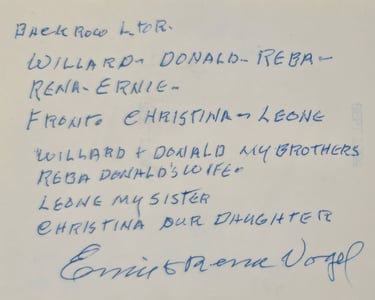 BACK ROW L. TOR.
WILLARD - DONALD - REBA -
RENA - ERNIE -
FRONT. CHRISTINA - LEONE
WILLARD + DONALD MY BROTHERS
REBA DONALD'S WIFE -
LEONE MY SISTER
CHRISTINA OUR DAUGHTER
Ernie & Rena Vogel